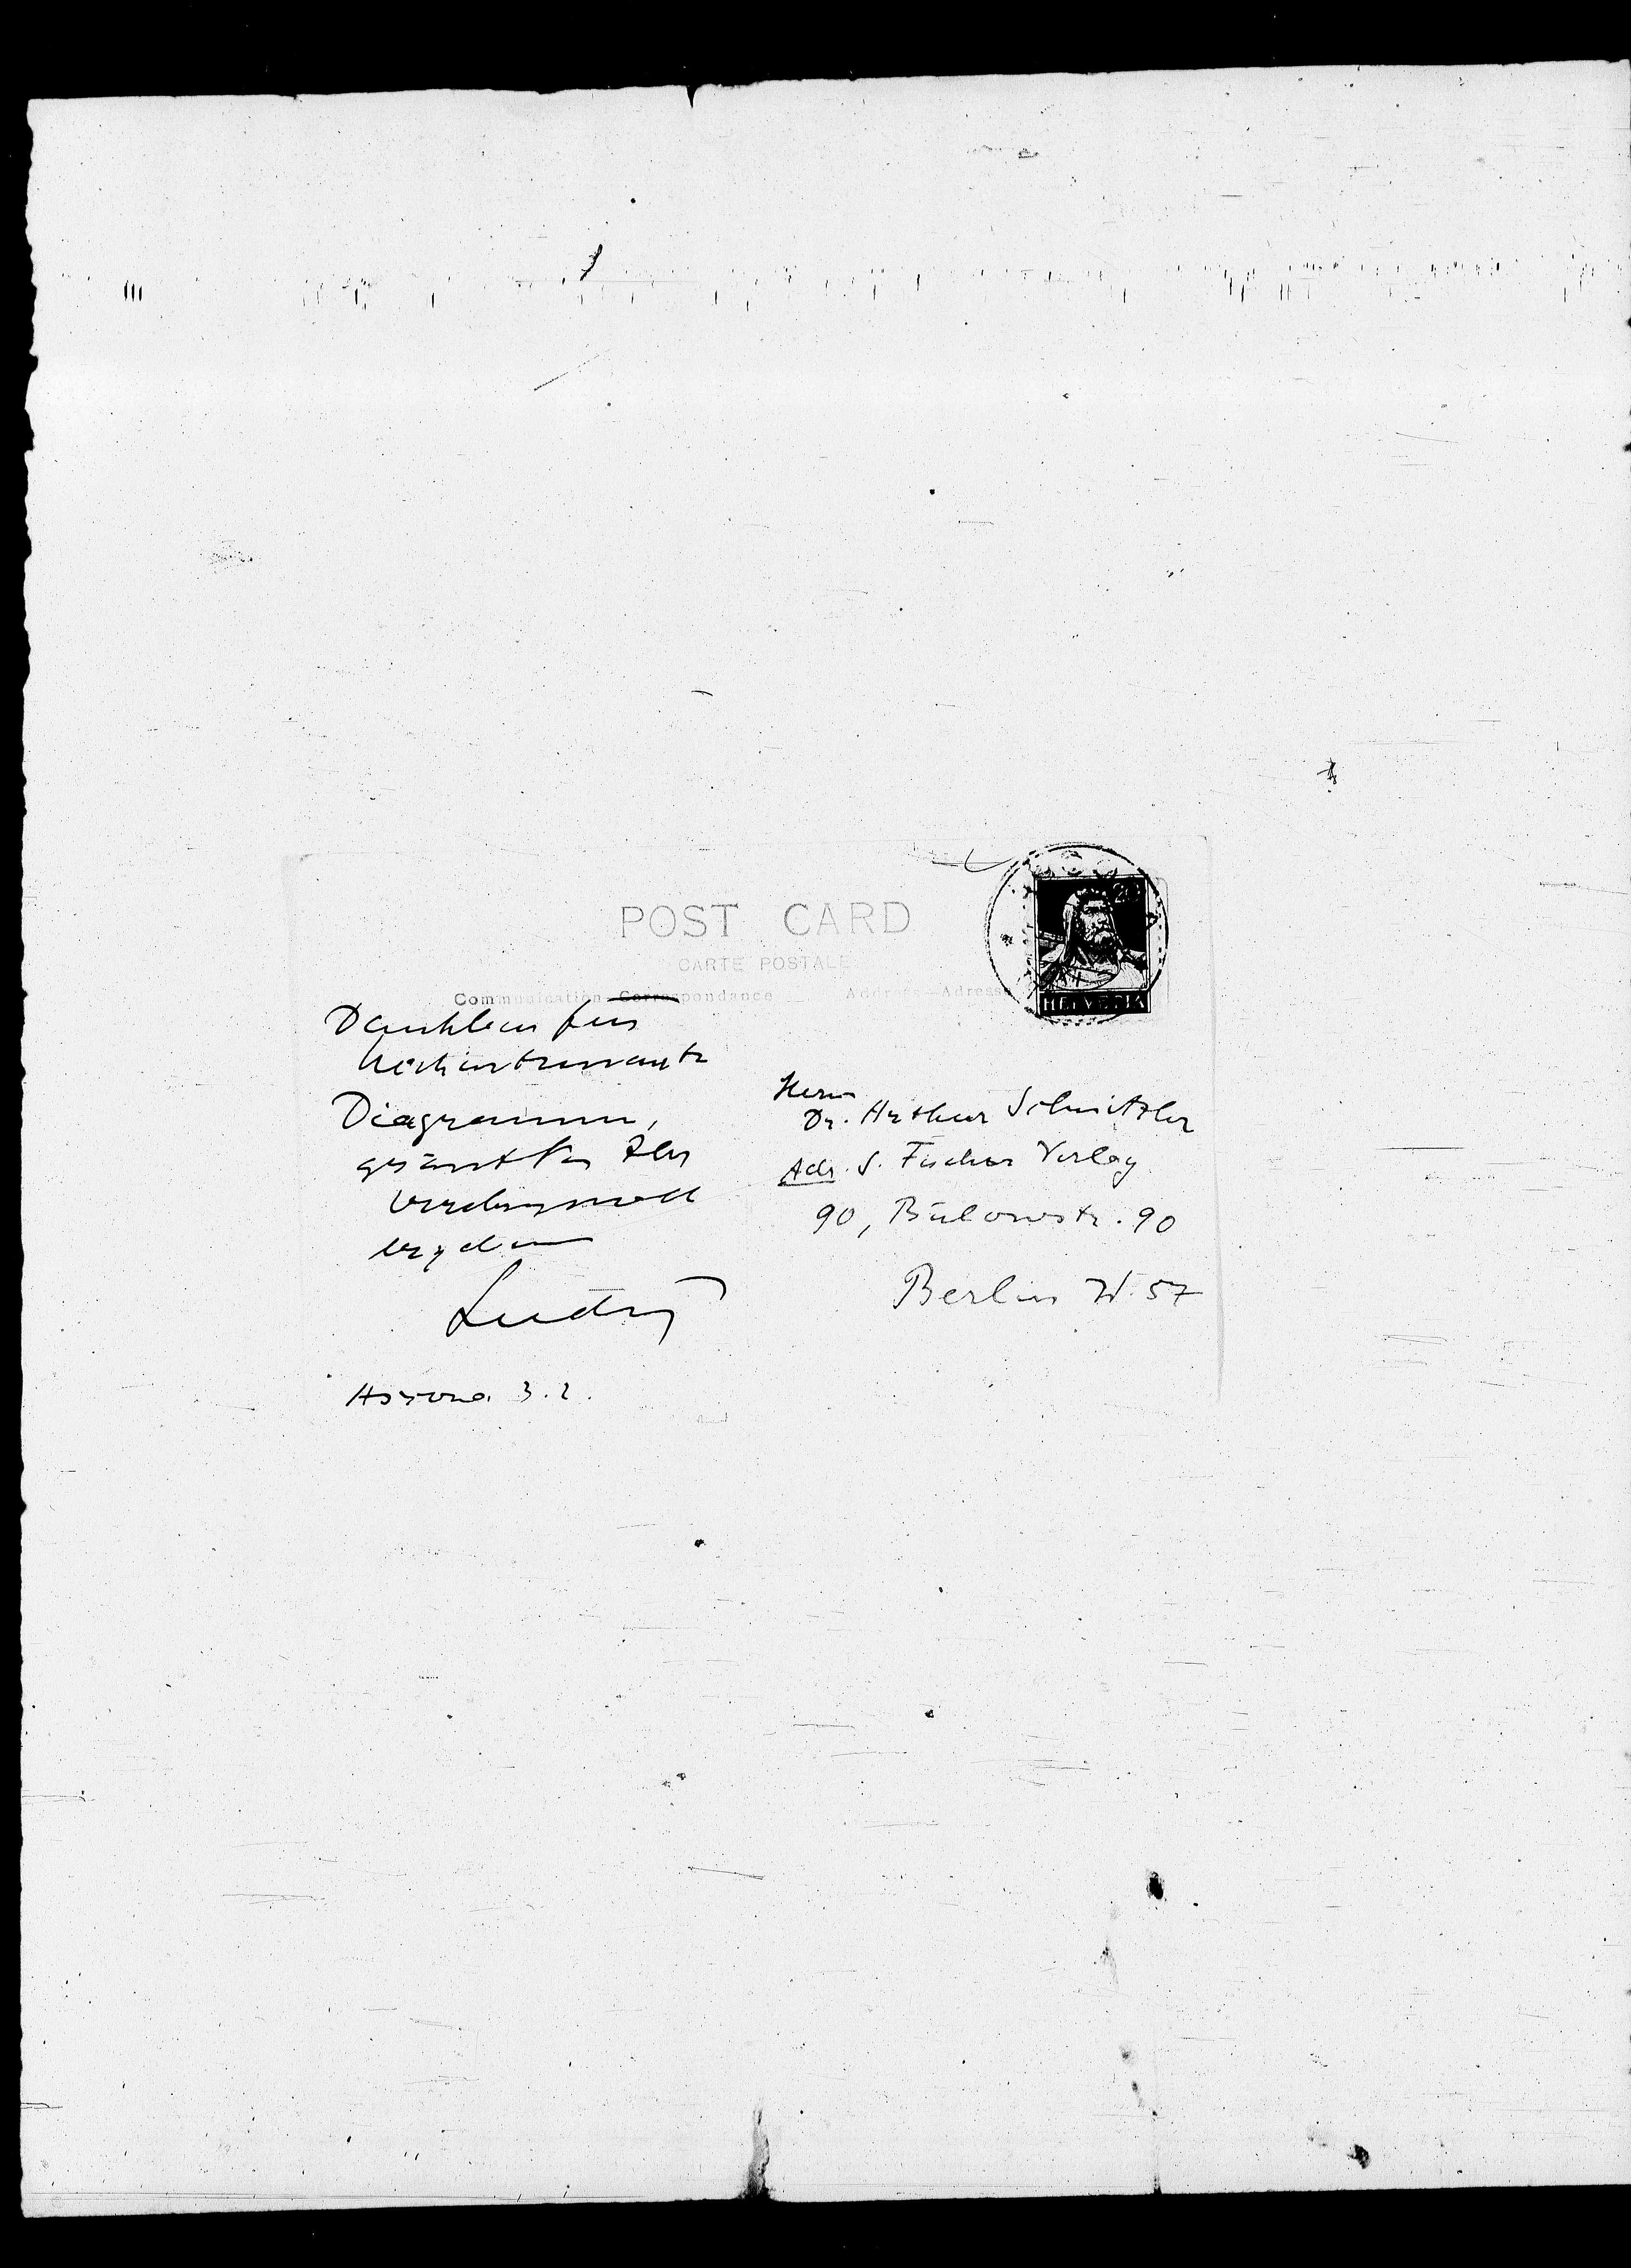 POST CARD
CARTE POSTALE
Communication-Correspondance Address-Adresse
HELVETIA
20
Dankbar für
hochinteressante
Diagramme,
grüsst Sie Ihr
verehrungsvoll
ergebener
Ludwig
Ascona 3.2.
Herrn
Dr. Arthur Schnitzler
Adr. S. Fischer Verlag
90, Bülowstr. 90
Berlin W. 57